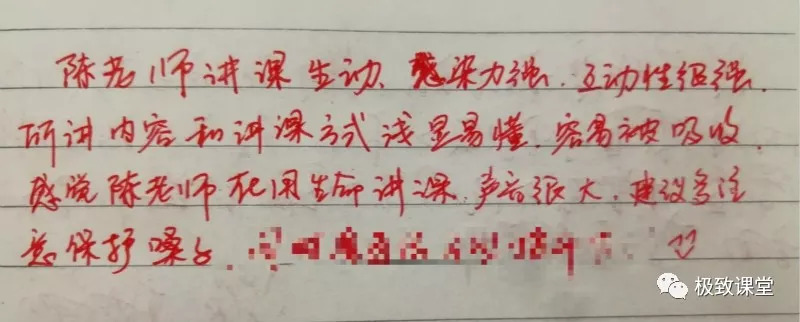 陈老师讲课生动、感染力强、互动性很强、
所讲内容和讲课方式浅显易懂、容易被吸收、
感觉陈老师在用生命讲课、声音很大、建议多注
意保护嗓子、
极致课堂